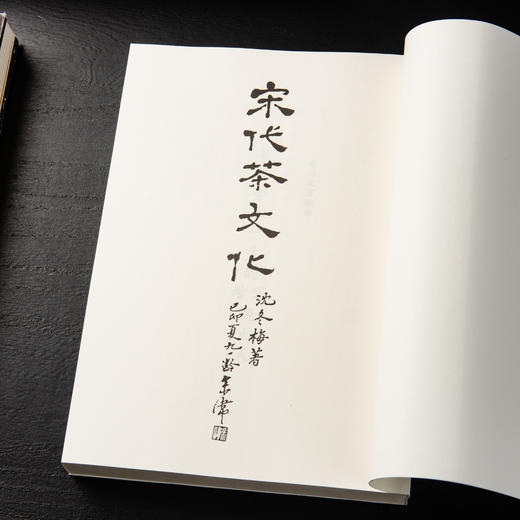 宋代茶文化
沈冬梅著
己卯夏九一龄